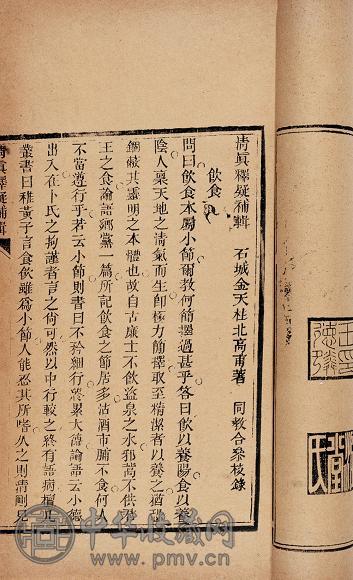 清真釋疑補輯 石城金天柱北高甫著 同教合參校錄
飲食
問曰飲食本屬小節爾教何簡擇過甚乎答曰飲以養陽食以養
陰人稟天地之清氣而生即極力簡擇取至精潔者以養之猶恐
錮蔽其靈明之本體也故自古廉士不飲盜泉之水邪蒿不供帝
王之食論語鄉黨一篇所記飲食之節居多沽酒市脯不食何人
不當遵行乎若云小節則書曰不矜細行終累大德論語云小德
出入在卜氏之拘謹者言之尚可然以中行較之終有語病
叢書曰稚黃子言食飲雖為小節人能忿其所嗜久之則清剛
清真釋疑補輯
中华收藏网
www.pmv.cn